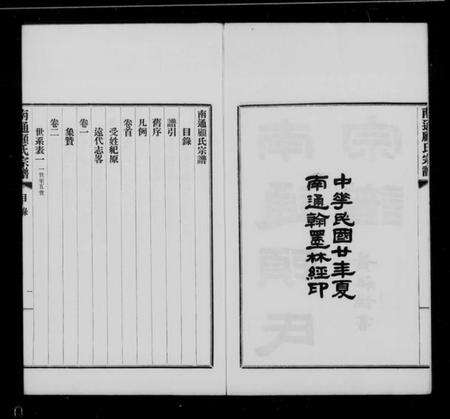 南通顧氏宗譜
中華民國廿年夏
南通翰墨林經印
南通顧氏宗譜
目錄
譜引
舊序
凡例
卷首
受姓紀原
遠代志畧
卷一
象贊
卷二
世系表一
南通顧氏宗譜
目錄
一